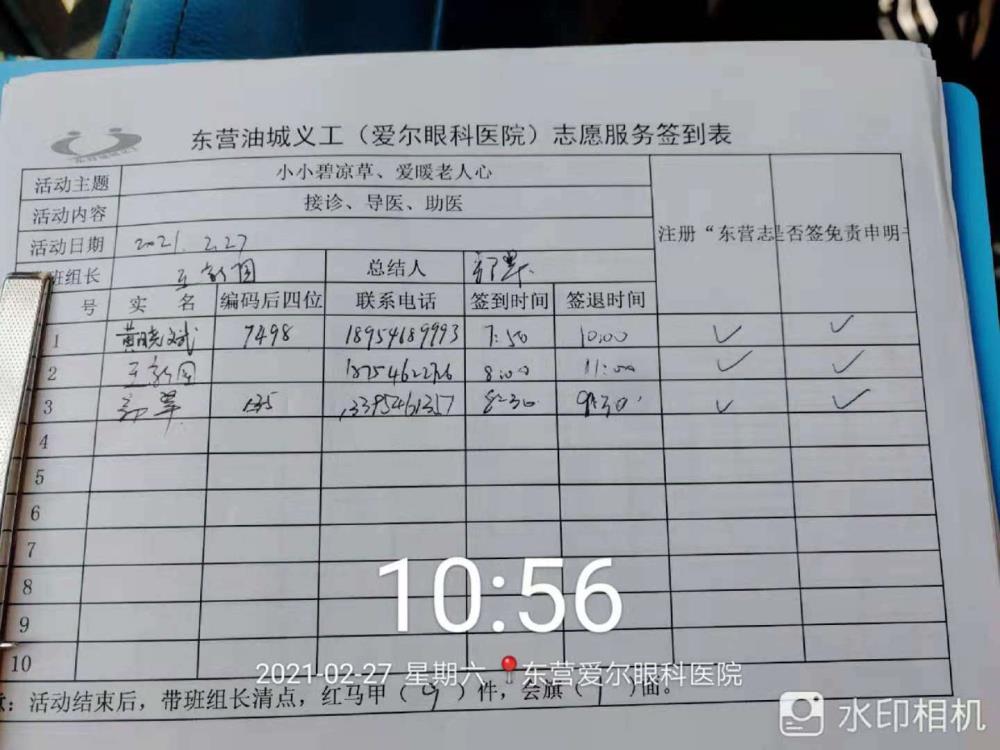 东营油城义工（爱尔眼科医院）志愿服务签到表
活动主题 小小碧凉草、爱暖老人心
活动内容 接诊、导医、助医
活动日期 2021.2.27
注册“东营志 是否签免责申明
班组长 总结人
号 实名 编码后四位 联系电话 签到时间 签退时间
1 黄晓斌 7498 18954689993 7:50 10:00 ✓ ✓
2 8:00 11:00 ✓ ✓
3 8:30 9:30 ✓ ✓
4
5
6
7
8
9
10
10:56
2021-02-27 星期六 东营爱尔眼科医院
：活动结束后，带班组长清点，红马甲（9）件，会旗（1）面。
水印相机